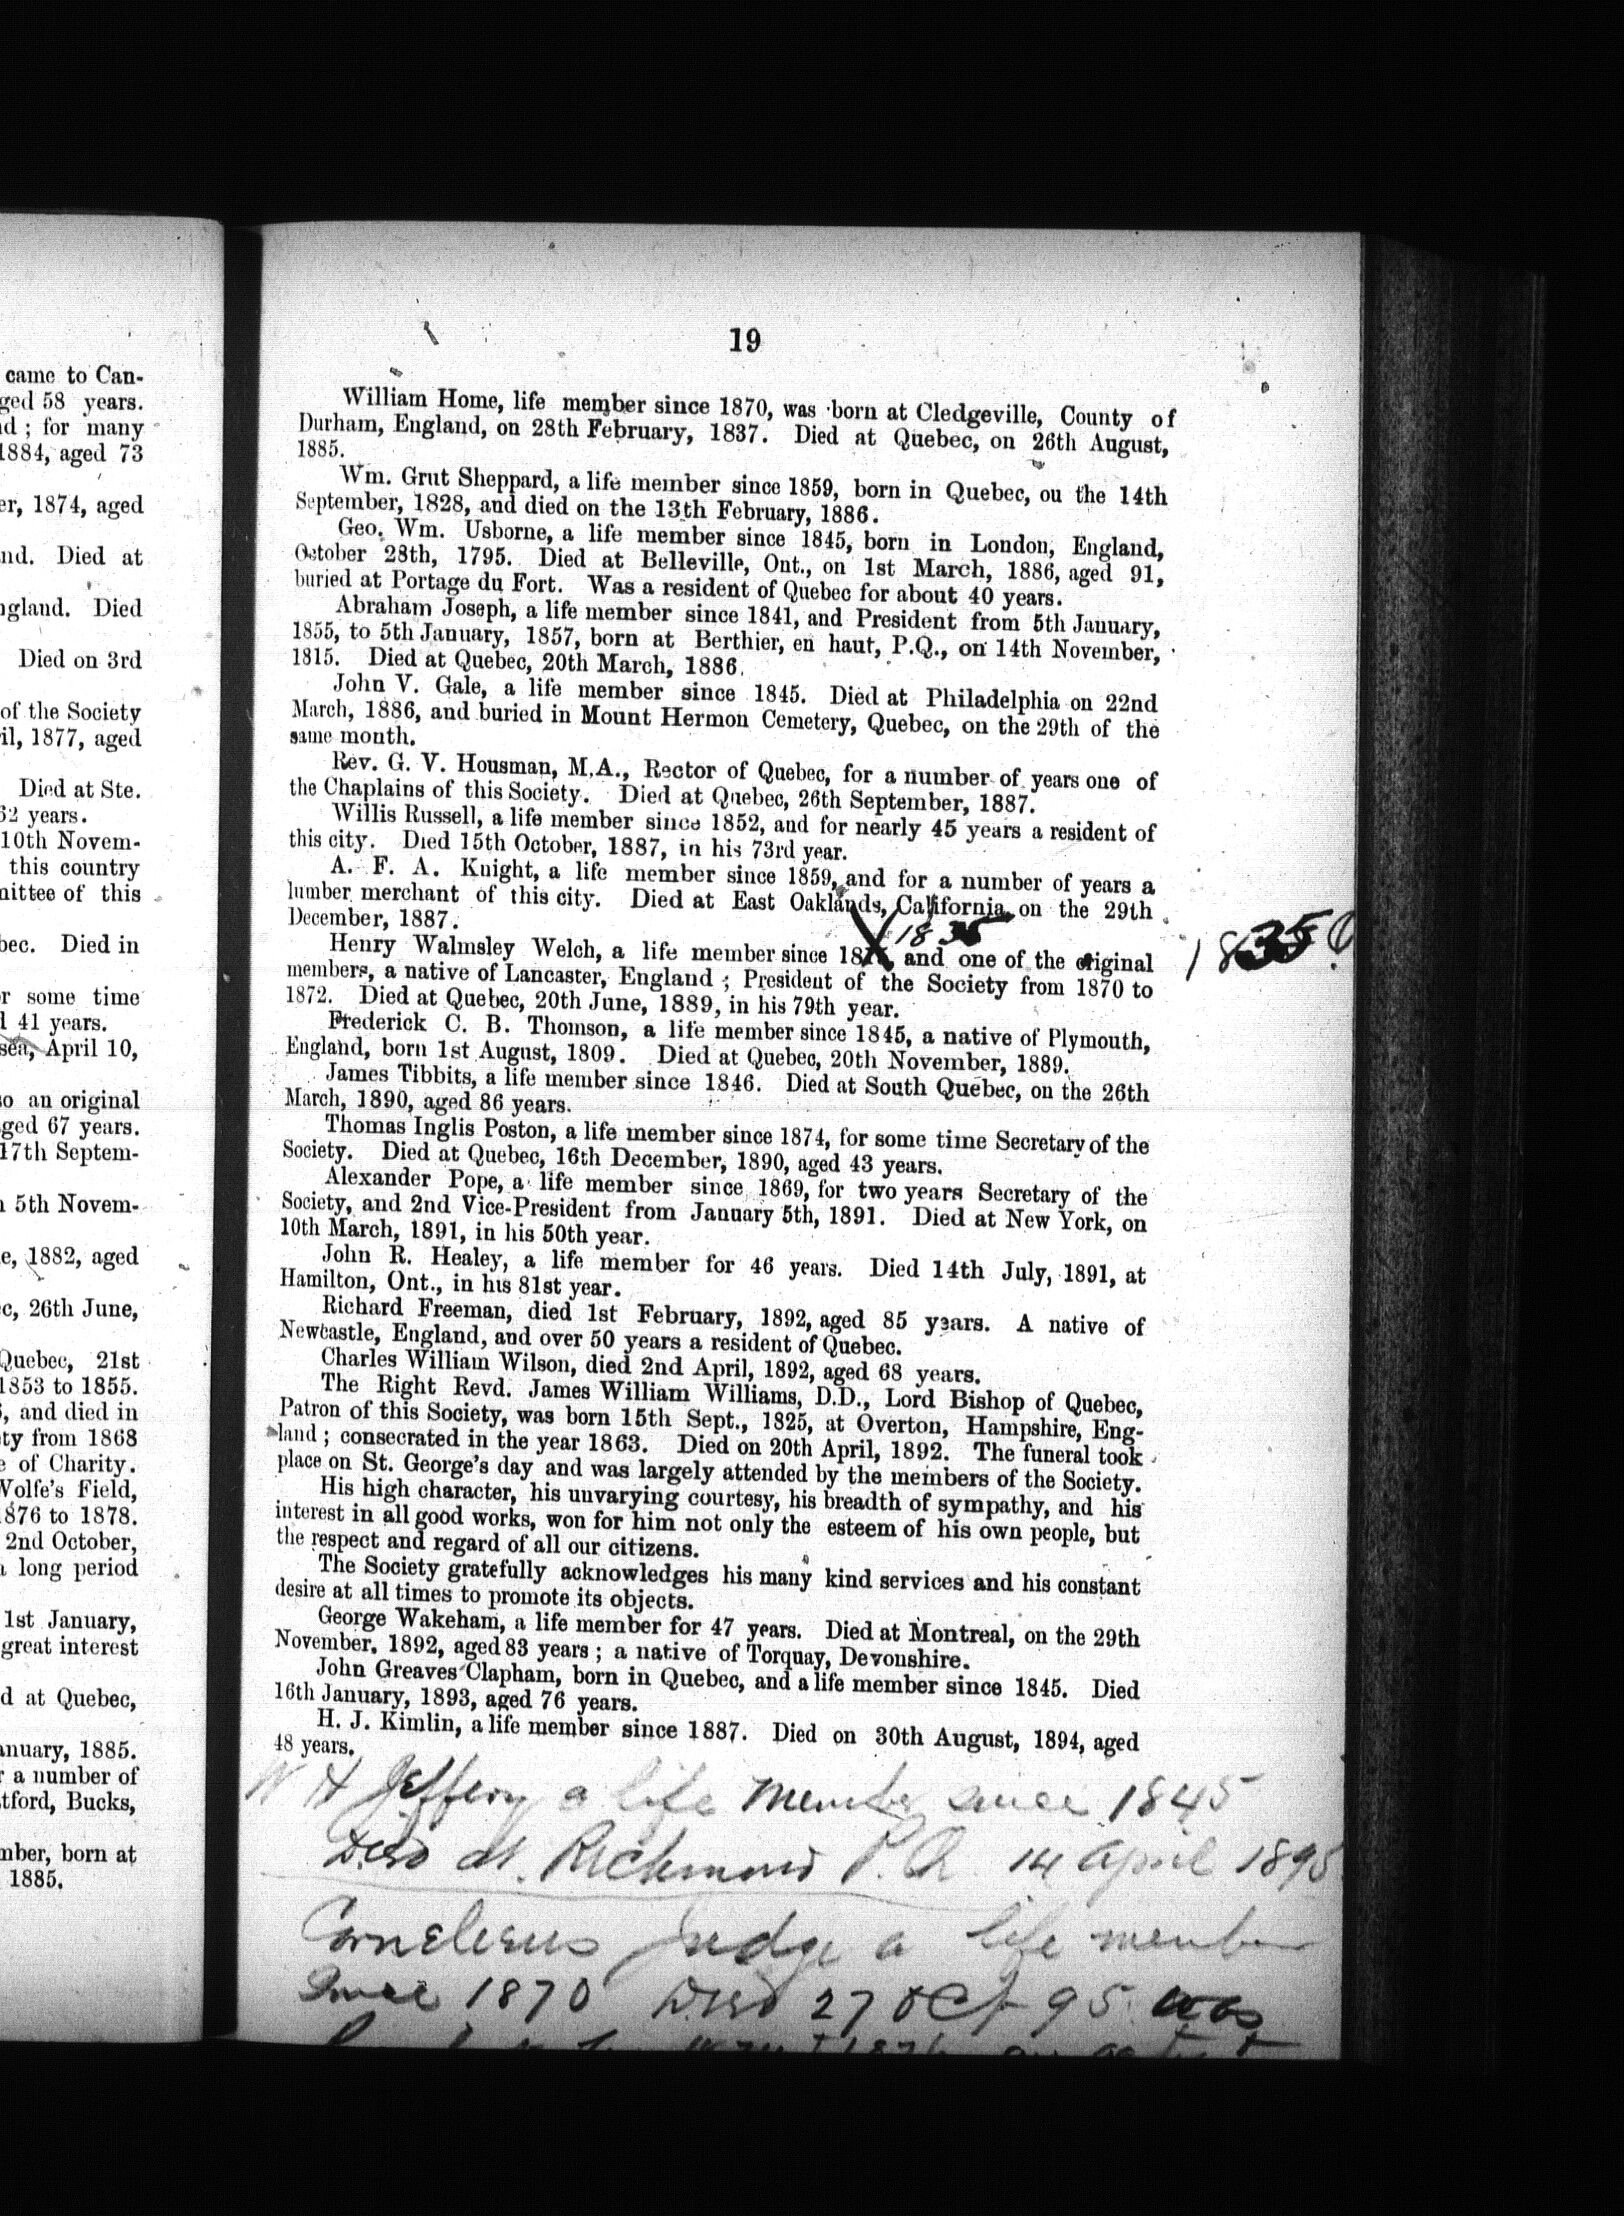 came to Can-
ged 58 years.
d ; for many
1884, aged 73
er, 1874, aged
nd. Died at
ngland. Died
Died on 3rd
of the Society
il, 1877, aged
Died at Ste.
62 years.
10th Novem-
this country
mittee of this
bec. Died in
r some time
d 41 years.
sea, April 10,
so an original
ged 67 years.
17th Septem-
n 5th Novem-
e, 1882, aged
c, 26th June,
Quebec, 21st
1853 to 1855.
, and died in
ty from 1868
e of Charity.
Wolfe's Field,
876 to 1878.
2nd October,
a long period
1st January,
great interest
d at Quebec,
anuary, 1885.
r a number of
tford, Bucks,
mber, born at
1885.
19
William Home, life member since 1870, was born at Cledgeville, County of
Durham, England, on 28th February, 1837. Died at Quebec, on 26th August,
1885.
Wm. Grut Sheppard, a life member since 1859, born in Quebec, ou the 14th
September, 1828, and died on the 13th February, 1886.
Geo. Wm. Usborne, a life member since 1845, born in London, England,
October 28th, 1795. Died at Belleville, Ont., on 1st March, 1886, aged 91,
buried at Portage du Fort. Was a resident of Quebec for about 40 years.
Abraham Joseph, a life member since 1841, and President from 5th January,
1855, to 5th January, 1857, born at Berthier, en haut, P.Q., on 14th November,
1815. Died at Quebec, 20th March, 1886.
John V. Gale, a life member since 1845. Died at Philadelphia on 22nd
March, 1886, and buried in Mount Hermon Cemetery, Quebec, on the 29th of the
same month.
Rev. G. V. Housman, M.A., Rector of Quebec, for a number of years one of
the Chaplains of this Society. Died at Quebec, 26th September, 1887.
Willis Russell, a life member since 1852, and for nearly 45 years a resident of
this city. Died 15th October, 1887, in his 73rd year.
A. F. A. Knight, a life member since 1859, and for a number of years a
lumber merchant of this city. Died at East Oaklands, California, on the 29th
December, 1887.
1835
Henry Walmsley Welch, a life member since and one of the original 1835
members, a native of Lancaster, England ; President of the Society from 1870 to
1872. Died at Quebec, 20th June, 1889, in his 79th year.
Frederick C. B. Thomson, a life member since 1845, a native of Plymouth,
England, born 1st August, 1809. Died at Quebec, 20th November, 1889.
James Tibbits, a life member since 1846. Died at South Quebec, on the 26th
March, 1890, aged 86 years.
Thomas Inglis Poston, a life member since 1874, for some time Secretary of the
Society. Died at Quebec, 16th December, 1890, aged 43 years.
Alexander Pope, a life member since 1869, for two years Secretary of the
Society, and 2nd Vice-President from January 5th, 1891. Died at New York, on
10th March, 1891, in his 50th year.
John R. Healey, a life member for 46 years. Died 14th July, 1891, at
Hamilton, Ont., in his 81st year.
Richard Freeman, died 1st February, 1892, aged 85 years. A native of
Newcastle, England, and over 50 years a resident of Quebec.
Charles William Wilson, died 2nd April, 1892, aged 68 years.
The Right Revd. James William Williams, D.D., Lord Bishop of Quebec,
Patron of this Society, was born 15th Sept., 1825, at Overton, Hampshire, Eng-
land ; consecrated in the year 1863. Died on 20th April, 1892. The funeral took
place on St. George's day and was largely attended by the members of the Society.
His high character, his unvarying courtesy, his breadth of sympathy, and his
interest in all good works, won for him not only the esteem of his own people, but
the respect and regard of all our citizens.
The Society gratefully acknowledges his many kind services and his constant
desire at all times to promote its objects.
George Wakeham, a life member for 47 years. Died at Montreal, on the 29th
November, 1892, aged 83 years ; a native of Torquay, Devonshire.
John Greaves Clapham, born in Quebec, and a life member since 1845. Died
16th January, 1893, aged 76 years.
H. J. Kimlin, a life member since 1887. Died on 30th August, 1894, aged
48 years.
W H Jeffery a life member since 1845
Died at Richmond P.Q 14 April 1895
Cornelieus Judge a life member
Since 1870 Died 27 Oct 95 was